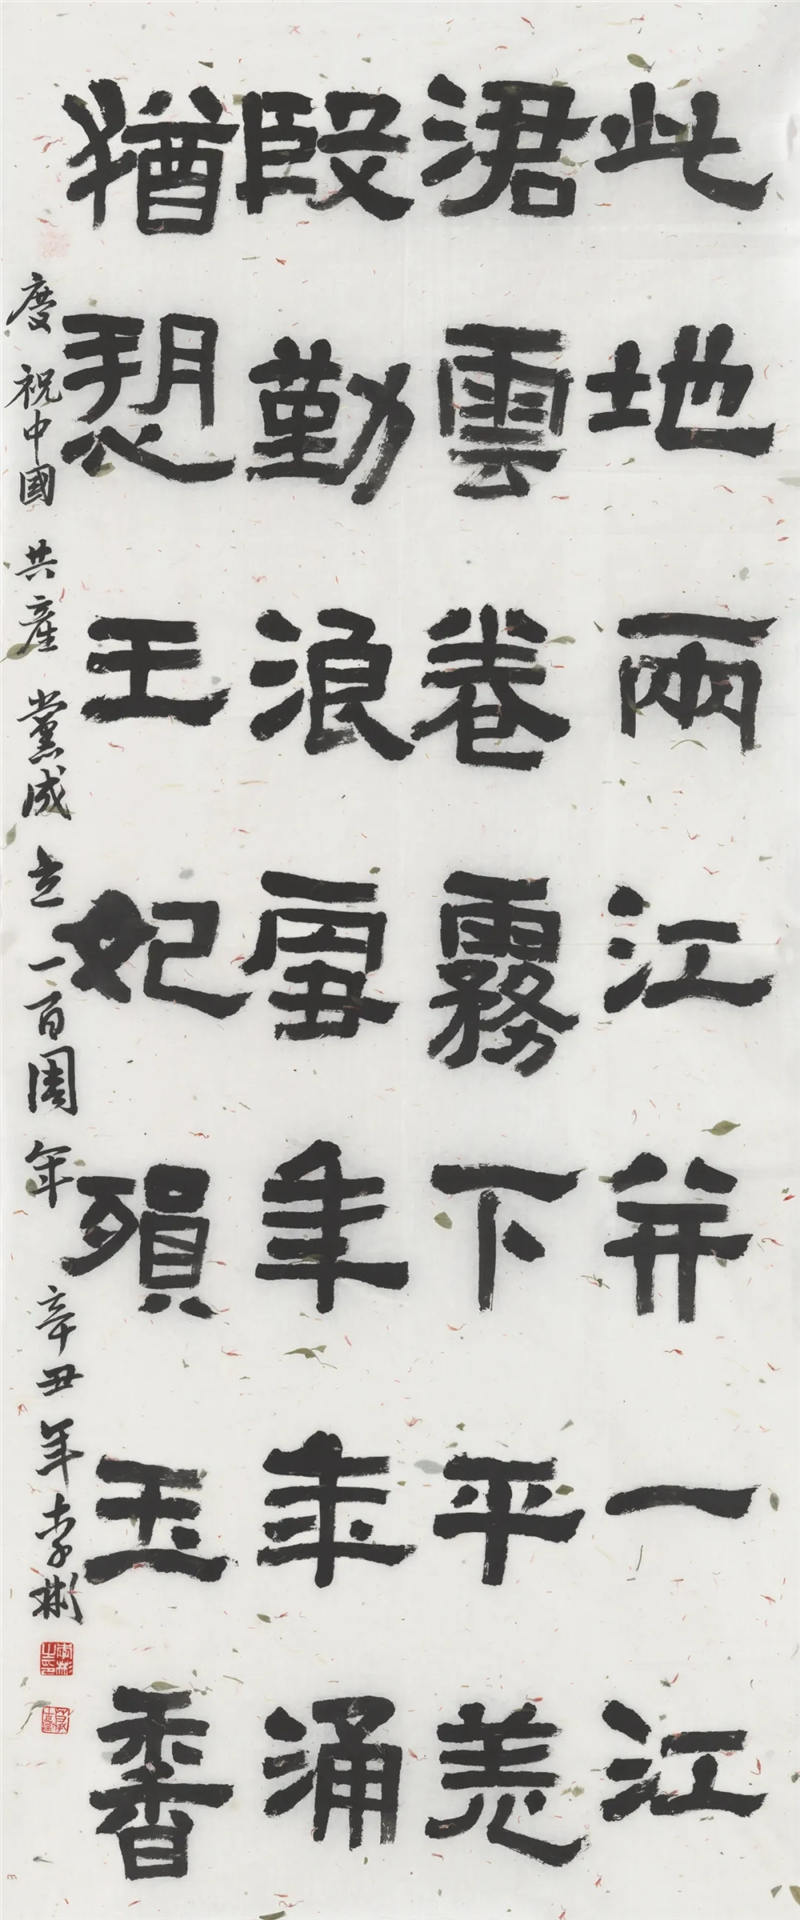 此地兩江并一江
涒雲卷霧下平羌
殷勤浪雪年年涌
猶恐王妃殞玉香
慶祝中國共產黨成立一百周年 辛丑年李彬
李彬之印